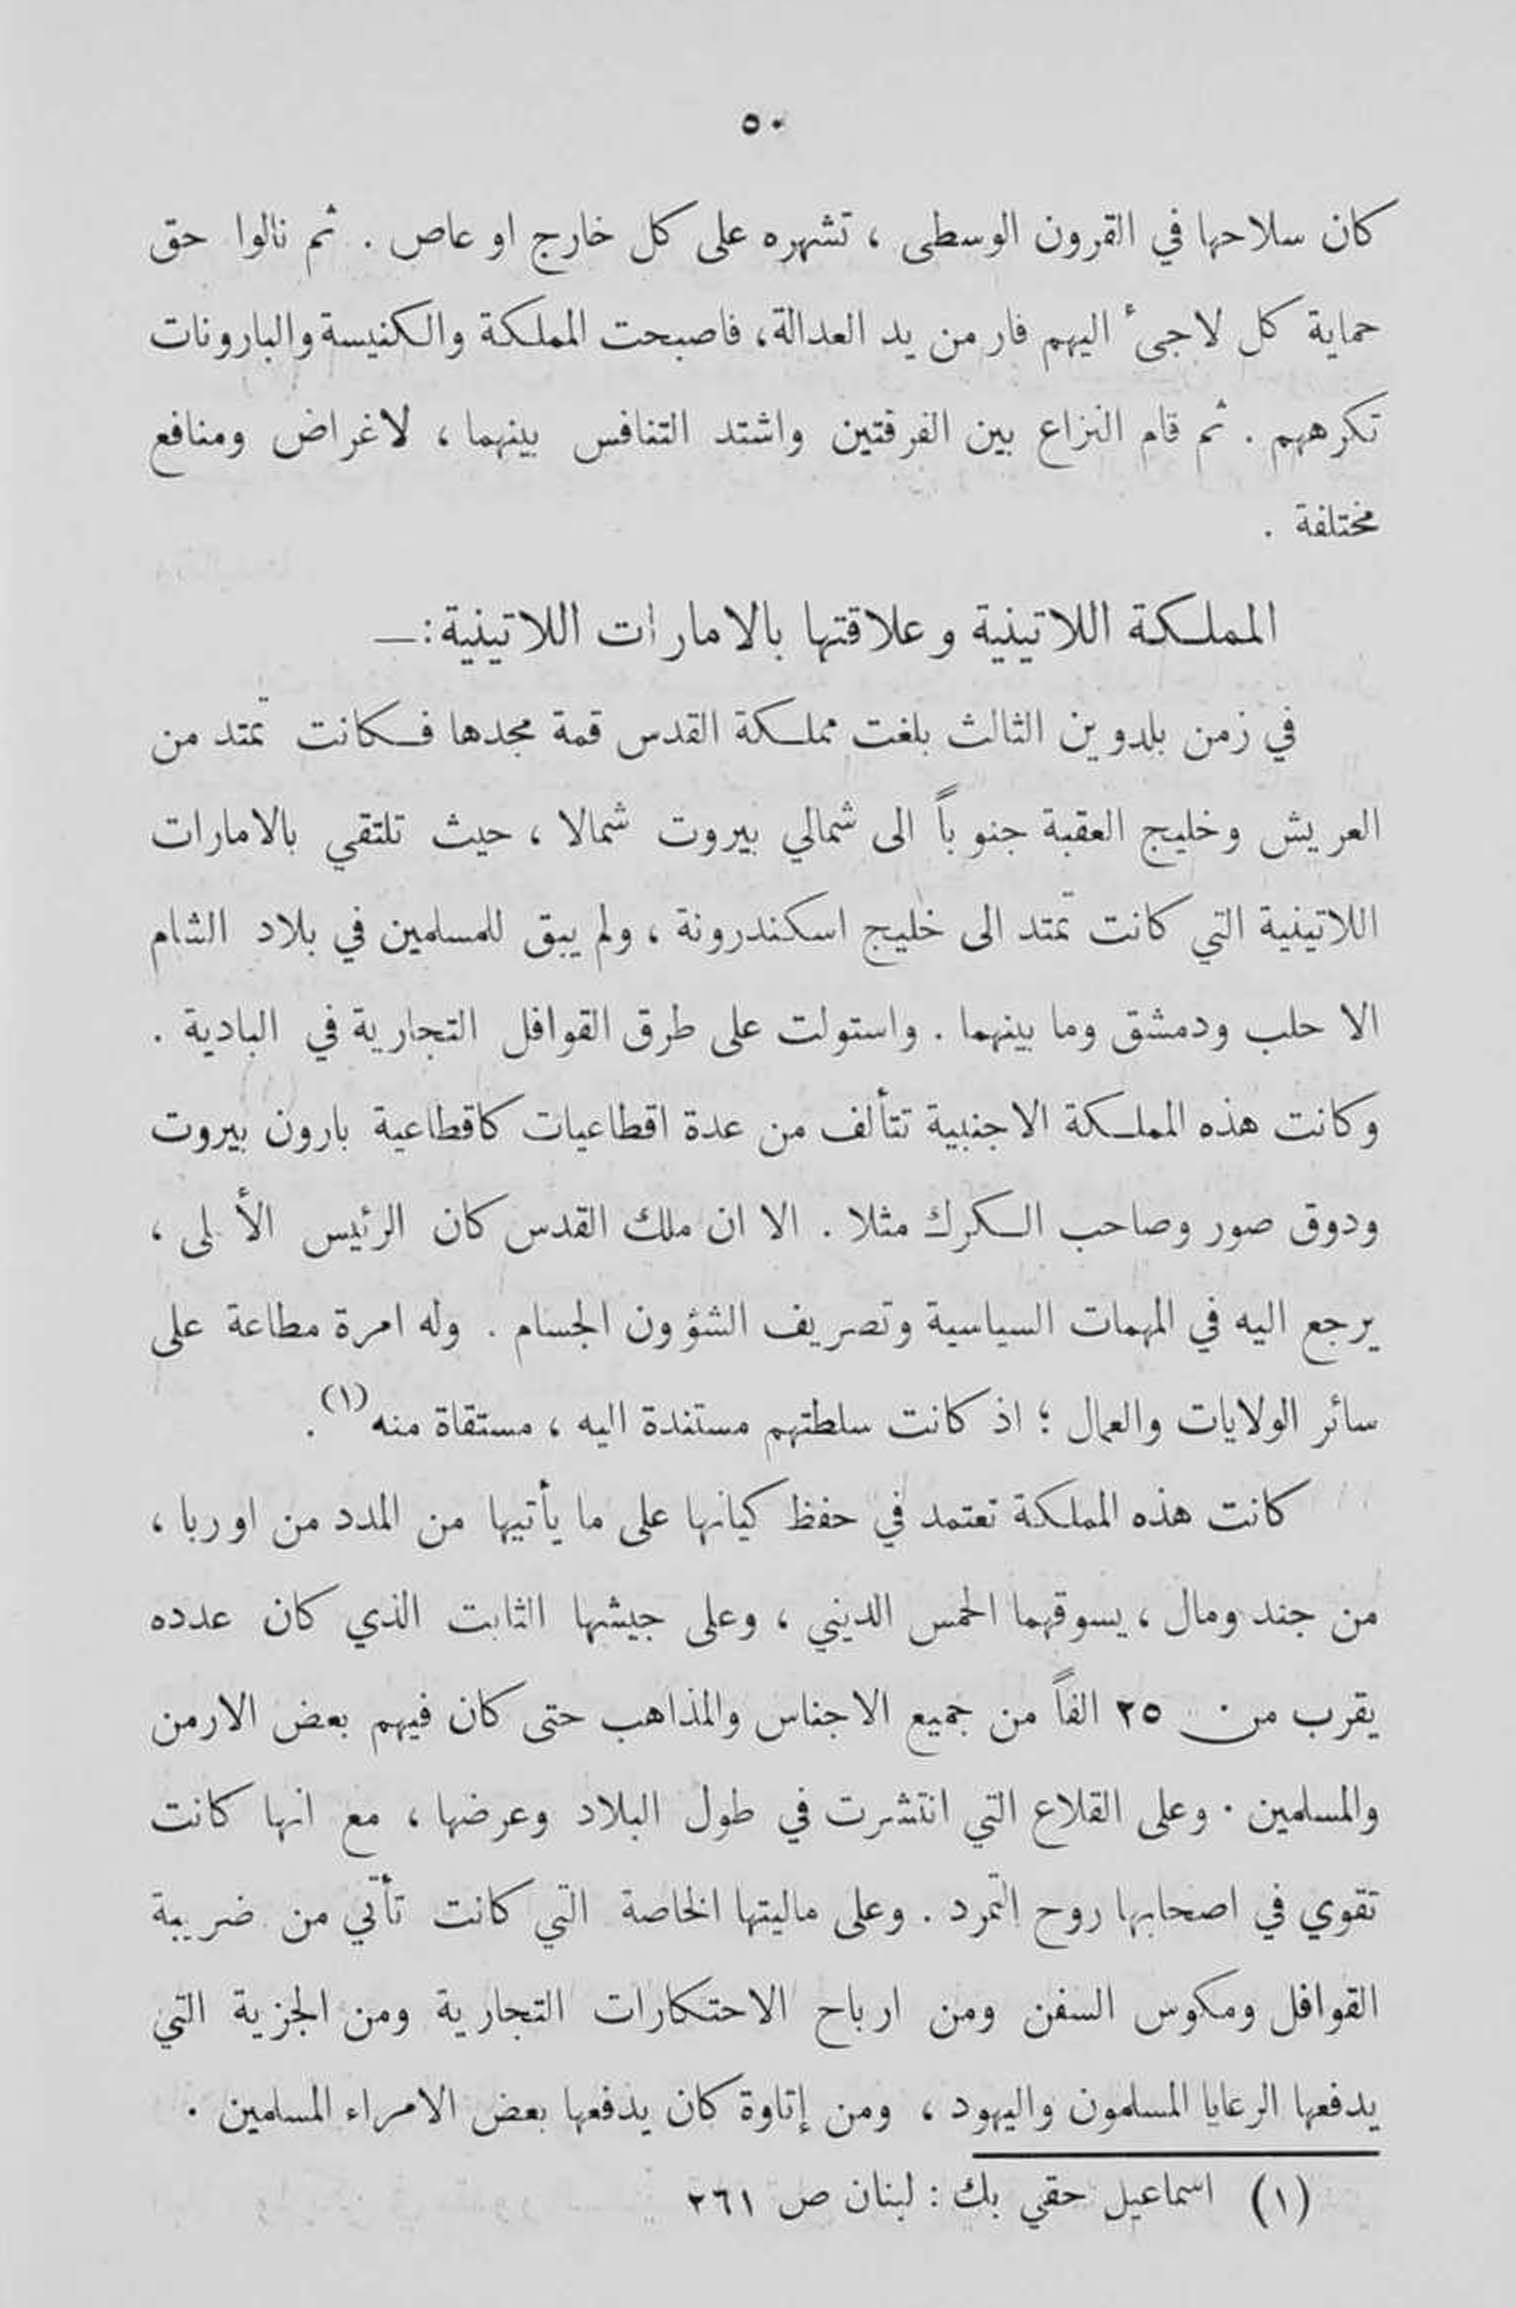 ٥٠
كان سلاحها في القرون الوسطى ، تشهره على كل خارج او عاص . ثم نالوا حق
حماية كل لاجىء اليهم فار من يد العدالة، فاصبحت المملكة والكنيسة والبارونات
تكرههم . ثم قام النزاع بين الفرقتين واشتد التنافس بينهما ، لاغراض ومنافع
مختلفة .
المملكة اللاتينية وعلاقتها بالامارات اللاتينية :ــ
في زمن بلدوين الثالث بلغت مملكة القدس قمة مجدها فكانت تمتد من
العريش وخليج العقبة جنوباً الى شمالي بيروت شمالا ، حيث تلتقي بالامارات
اللاتينية التي كانت تمتد الى خليج اسكندرونة ، ولم يبق للمسلمين في بلاد الشام
الا حلب ودمشق وما بينهما . واستولت على طرق القوافل التجارية في البادية .
وكانت هذه المملكة الاجنبية تتألف من عدة اقطاعيات كاقطاعية بارون بيروت
ودوق صور وصاحب الكرك مثلا . الا ان ملك القدس كان الرئيس الأ لى ،
يرجع اليه في المهمات السياسية وتصريف الشؤون الجسام . وله امرة مطاعة على
سائر الولايات والعمال ؛ اذ كانت سلطتهم مستندة اليه ، مستقاة منه (١) .
كانت هذه المملكة تعتمد في حفظ كيانها على ما يأتيها من المدد من اوربا ،
من جند ومال ، يسوقهما الحمس الديني ، وعلى جيشها الثابت الذي كان عدده
يقرب من ٢٥ الفاً من جميع الاجناس والمذاهب حتى كان فيهم بعض الارمن
والمسلمين . وعلى القلاع التي انتشرت في طول البلاد وعرضها ، مع انها كانت
تقوي في اصحابها روح التمرد . وعلى ماليتها الخاصة التي كانت تأتي من ضريبة
القوافل ومكوس السفن ومن ارباح الاحتكارات التجارية ومن الجزية التي
يدفعها الرعايا المسلمون واليهود ، ومن إتاوة كان يدفعها بعض الامراء المسلمين .
(١) اسماعيل حقي بك : لبنان ص ٢٦١